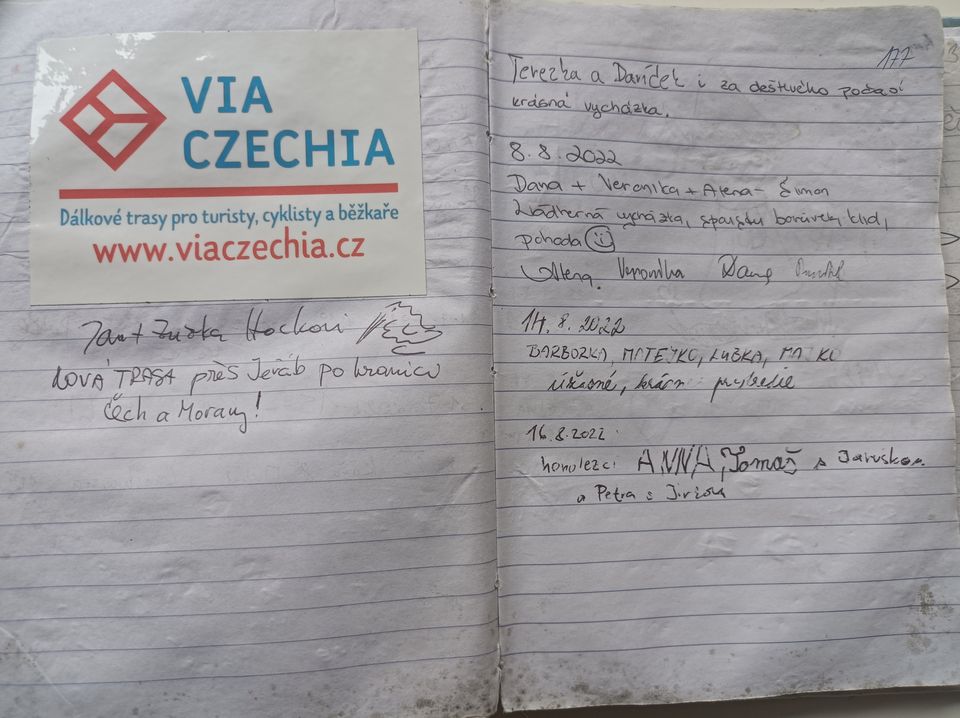 VIA
CZECHIA
Dálkové trasy pro turisty, cyklisty a běžkaře
www.viaczechia.cz
Jan + Zuzka Hockovi
NOVÁ TRASA přes Jeřáb po hranici
Čech a Moravy!
177
Terezka a Daníček i za deštivého počasí
krásná vycházka.
8.8.2022
Dana + Veronika + Alena - Šimon
Nádherná vycházka, spoustu borůvek, klid,
pohoda
Alena. Veronika Dana
14.8.2022
BARBORKA, MATEJKO, LUBKA,
úžasné, krásné
16.8.2022
ANNA, Tomáš s Jaruškou
a Petra s